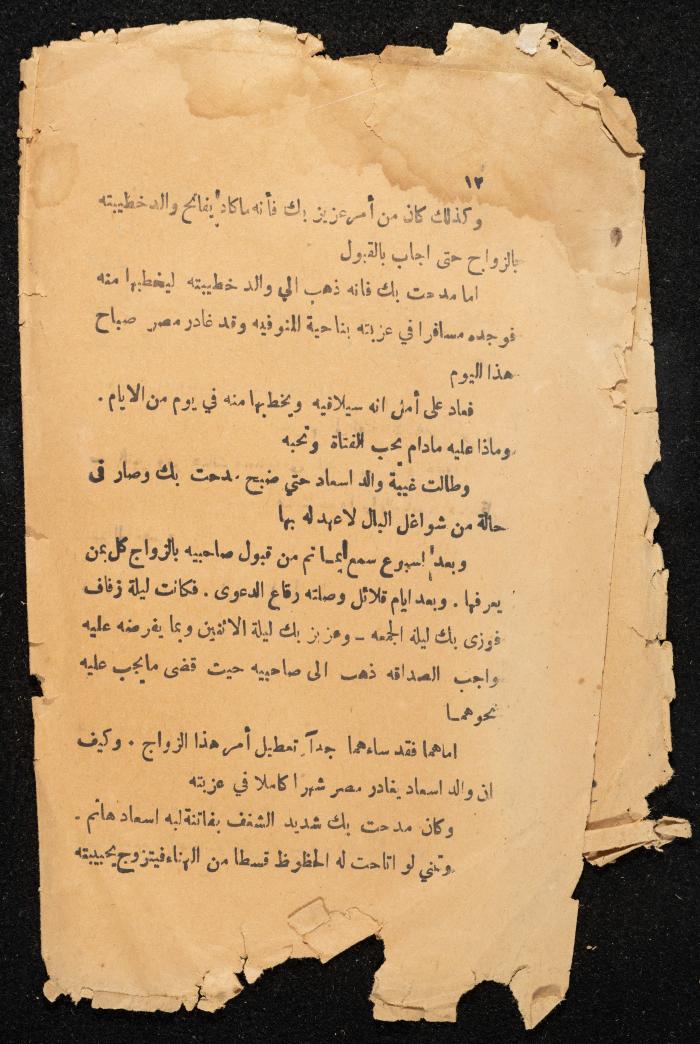 ١٢
وكذلك كان من أمر عزيز بك فأنه ماكاد يفاتح والد خطيبته
بالزواج حتى اجاب بالقبول
اما مدحت بك فانه ذهب الي والد خطيبته ليخطبها منه
فوجده مسافرا في عزبته بناحية المنوفيه وقد غادر مصر صباح
هذا اليوم
فعاد على أمل انه سيلاقيه ويخطبها منه في يوم من الايام .
وماذا عليه مادام يحب الفتاة وتحبه
وطالت غيبة والد اسعاد حتي ضبح مدحت بك وصار فى
حالة من شواغل البال لا عهد له بها
وبعد اسبوع سمع من قبول صاحبيه بالزواج كل بمن
يعرفها . وبعد ايام قلائل وصلته رقاع الدعوى . فكانت ليلة زفاف
فوزى بك ليلة الجمعه - وعزيز بك ليلة الاثنين وبما يفرضه عليه
واجب الصداقه ذهب الى صاحبيه حيت قضى مايجب عليه
نحوهما
اماهما فقد ساءهما جداً تعطيل أمر هذا الزواج . وكيف
ان والد اسعاد يغادر مصر شهرا كاملا في عزبته
وكان مدحت بك شديد الشغف بفاتنة لبه اسعاد هانم .
وتمني لو اتاحت له الحظوظ قسطا من الهناء فيتزوج بحبيبته